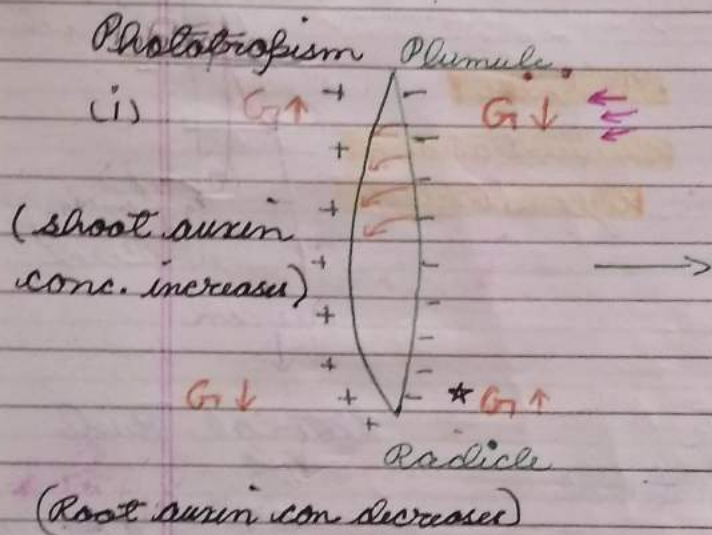 Phototropism Plumule
(i) G↑ + − G↓
+ −
(shoot auxin + −
conc. increases) + −
+ −
+ −
G↓ + − ☆ G↑
+
Radicle
(Root auxin con decreases)